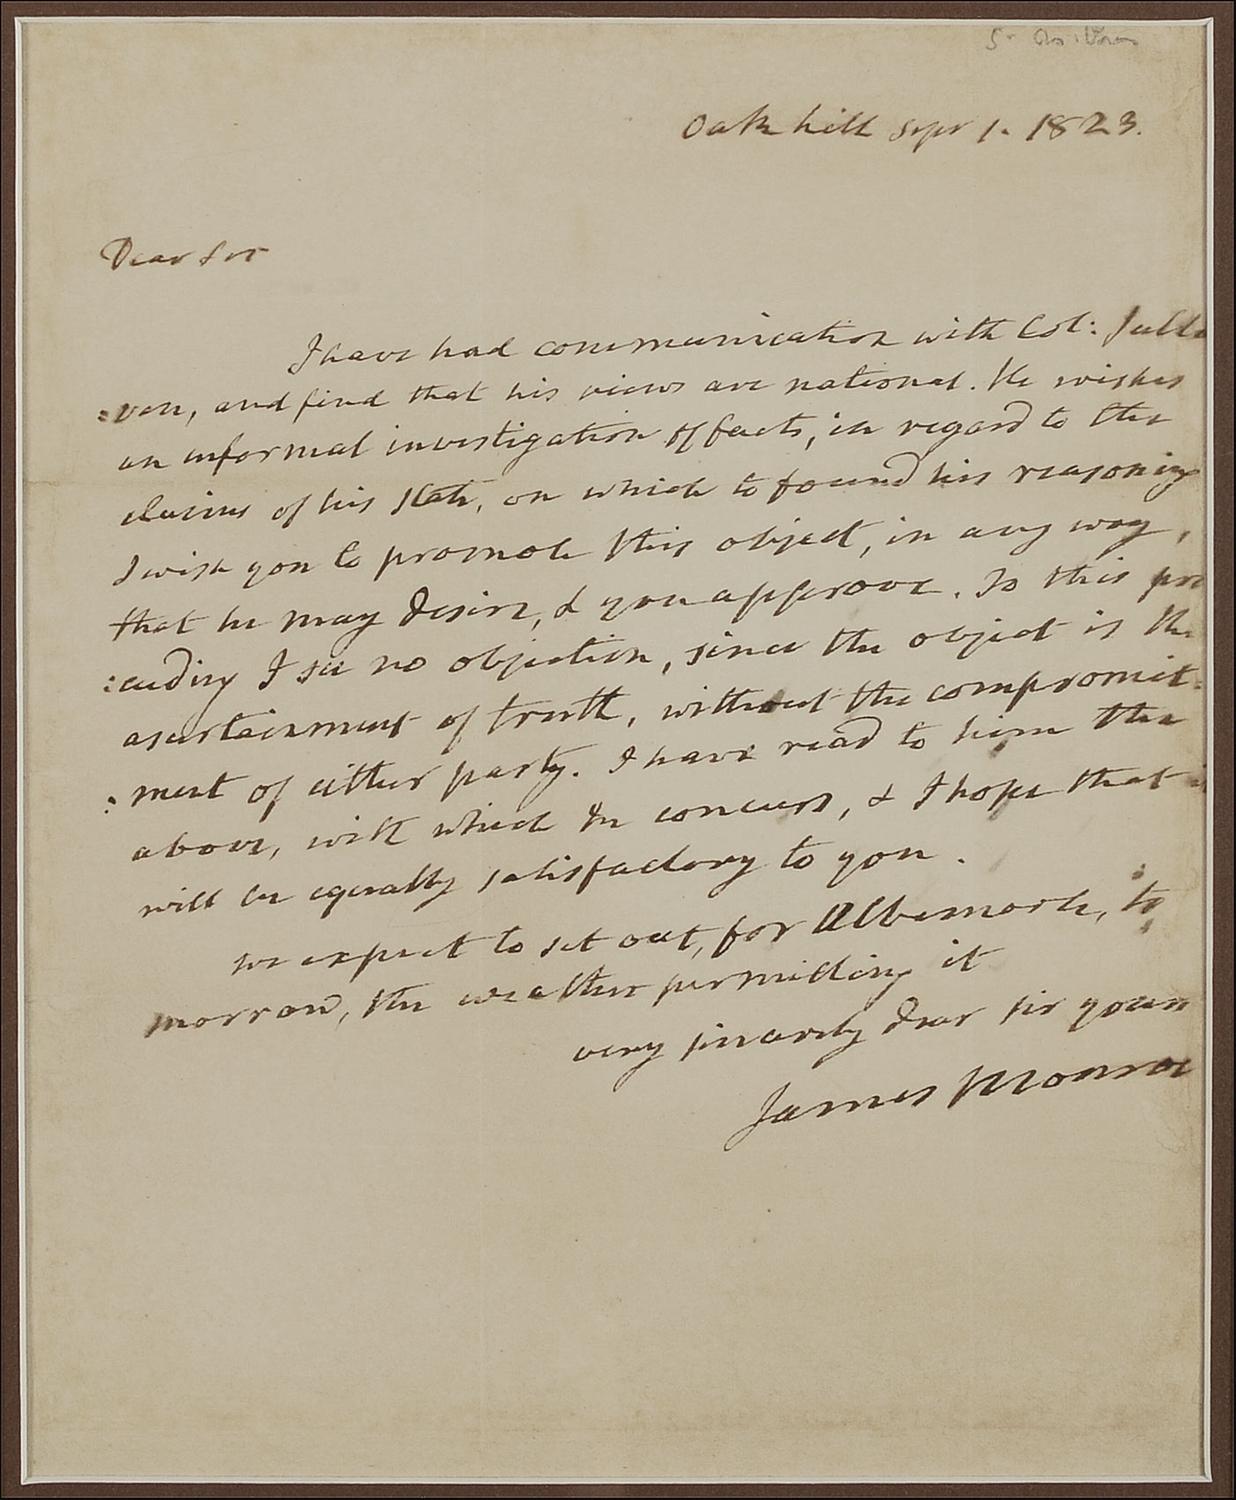 Oak hill Sepr 1. 1823.
Dear Sir
I have had communication with Col: Sulli
:van, and find that his views are national. He wishes
an informal investigation of facts, in regard to the
claims of his State, on which to found his reasoning
I wish you to promote this object, in any way,
that he may desire, & you approve. To this pro
:ceeding I see no objection, since the object is the
ascertainment of truth, without the compromit:
:ment of either party. I have read to him the
above, with which he concurs, & I hope that it
will be equally satisfactory to you.
We expect to set out, for Albemarle, to
morrow, the weather permitting it
very sincerely dear Sir yours
James Monroe